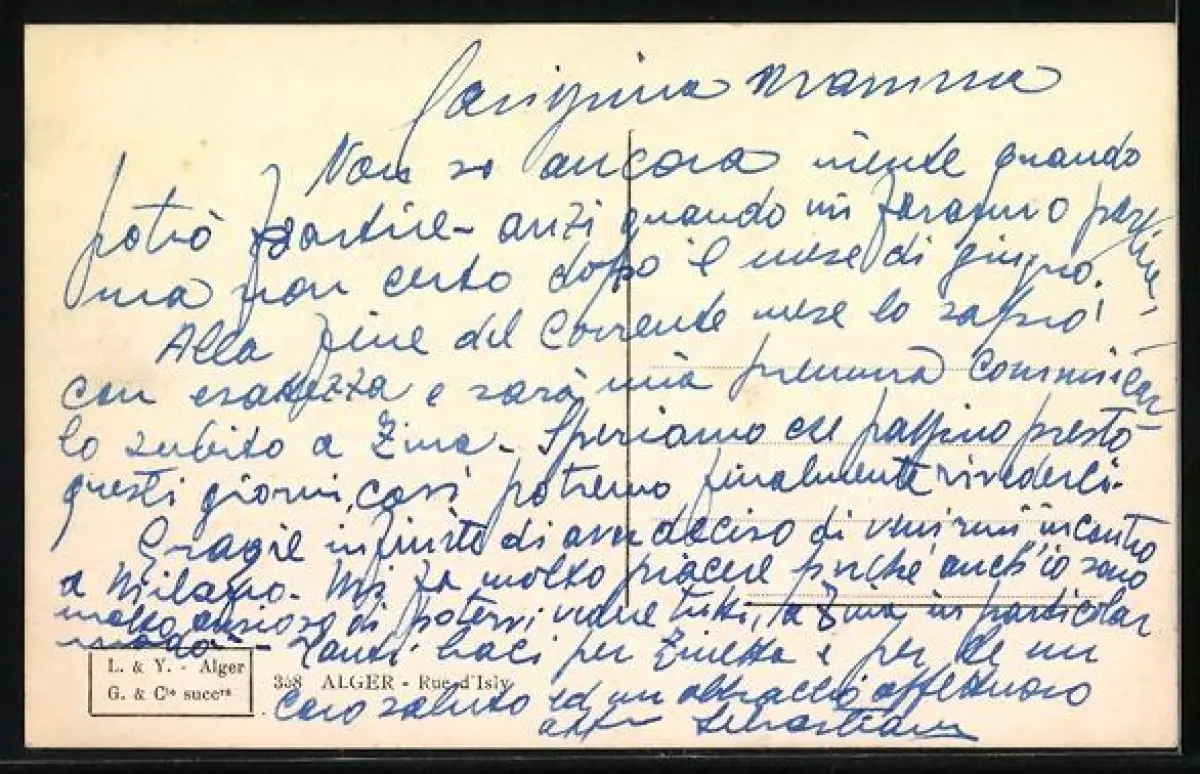 Carissima Mamma
Non so ancora niente quando
potrò partire - anzi quando mi faranno partire -
ma non certo dopo il mese di giugno.
Alla fine del corrente mese lo saprò
con esattezza e sarà mia premura comunicar
lo subito a Zina - Speriamo che passino presto
questi giorni, così potremo finalmente rivederci.
Grazie infinite di aver deciso di venirmi incontro
a Milano. Mi fa molto piacere perché anch'io sono
molto curioso di potervi vedere tutti, la Zina in particolar
modo - Tanti baci per Zinetta e per te un
caro saluto ed un abbraccio affettuoso
aff Sebastiano
L. & Y. - Alger
G. & Cie succrs
358 ALGER - Rue d'Isly